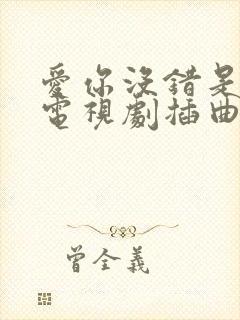 愛你沒錯是
電視劇插曲
曾全義